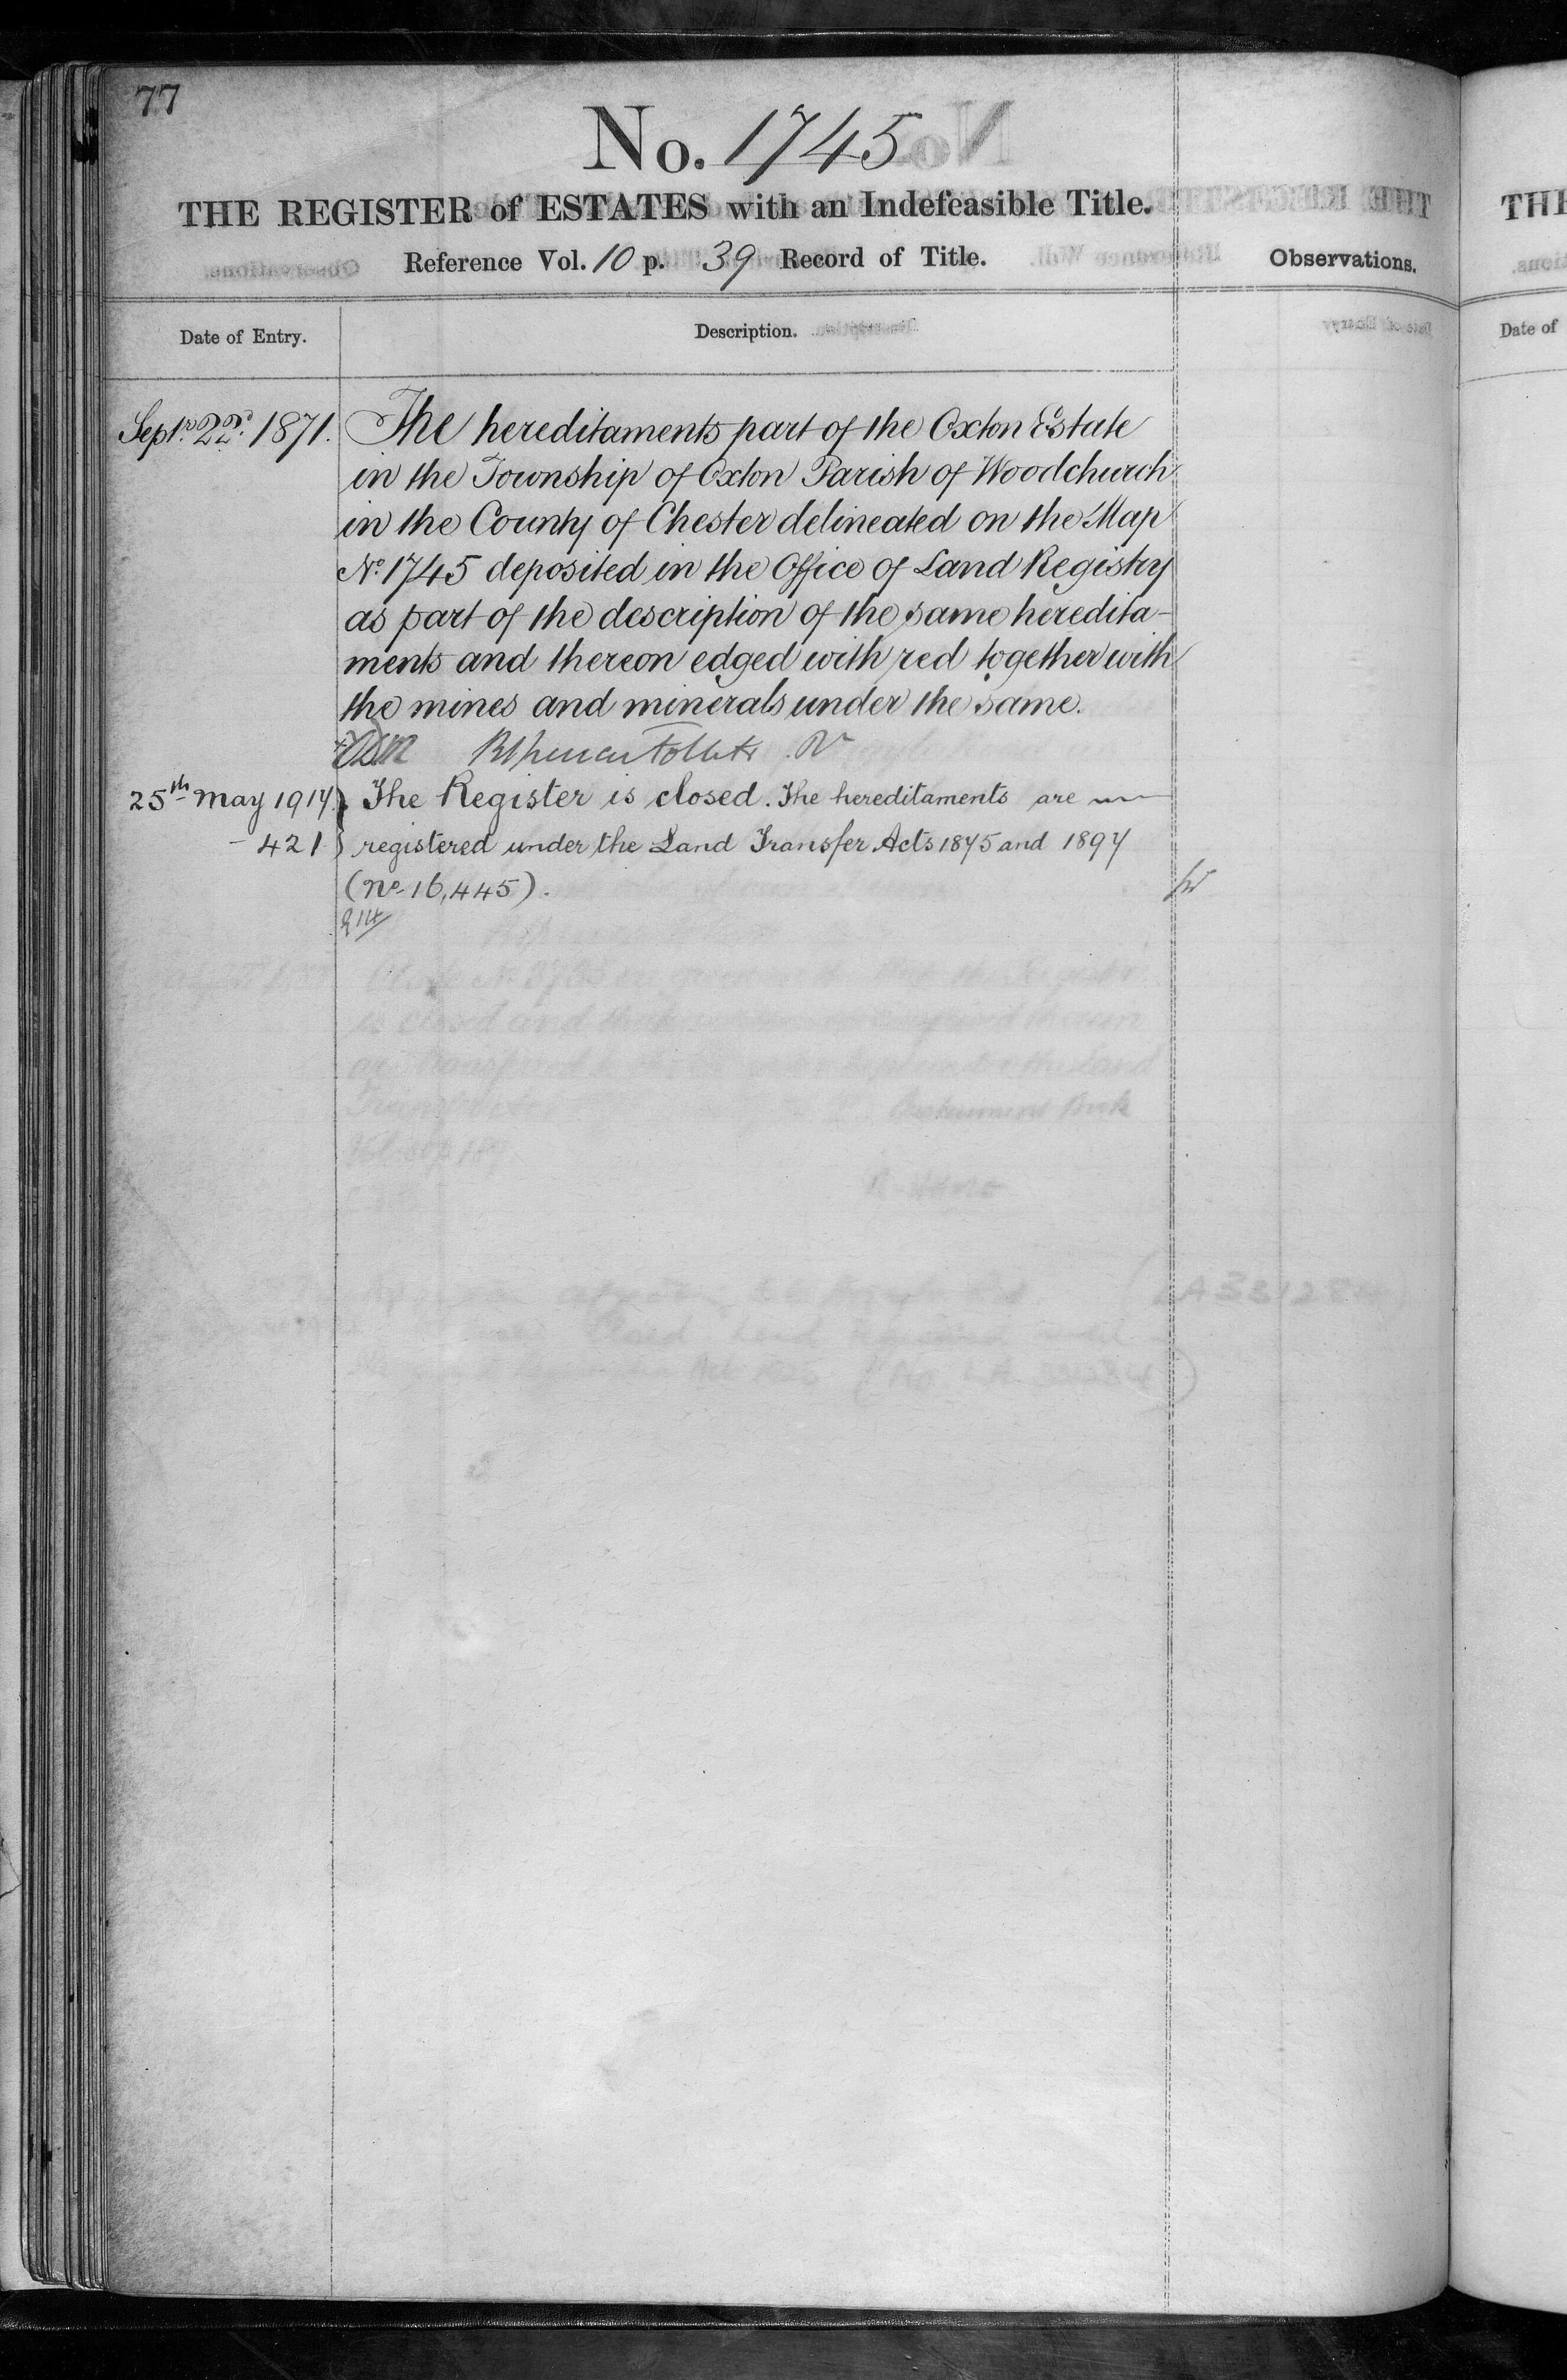 77
No. 1745
THE REGISTER of ESTATES with an Indefeasible Title.
Reference Vol. 10 p. 39 Record of Title.
Observations.
Date of Entry.
Description.
Septr. 22d. 1871.
The hereditaments part of the Oxton Estate
in the Township of Oxton Parish of Woodchurch
in the County of Chester delineated on the Map
No. 1745 deposited in the Office of Land Registry
as part of the description of the same heredita-
ments and thereon edged with red together with
the mines and minerals under the same.
25th May 1914
- 421
The Register is closed. The hereditaments are
registered under the Land Transfer Acts 1875 and 1897
(No. 16,445).
THE
Date of